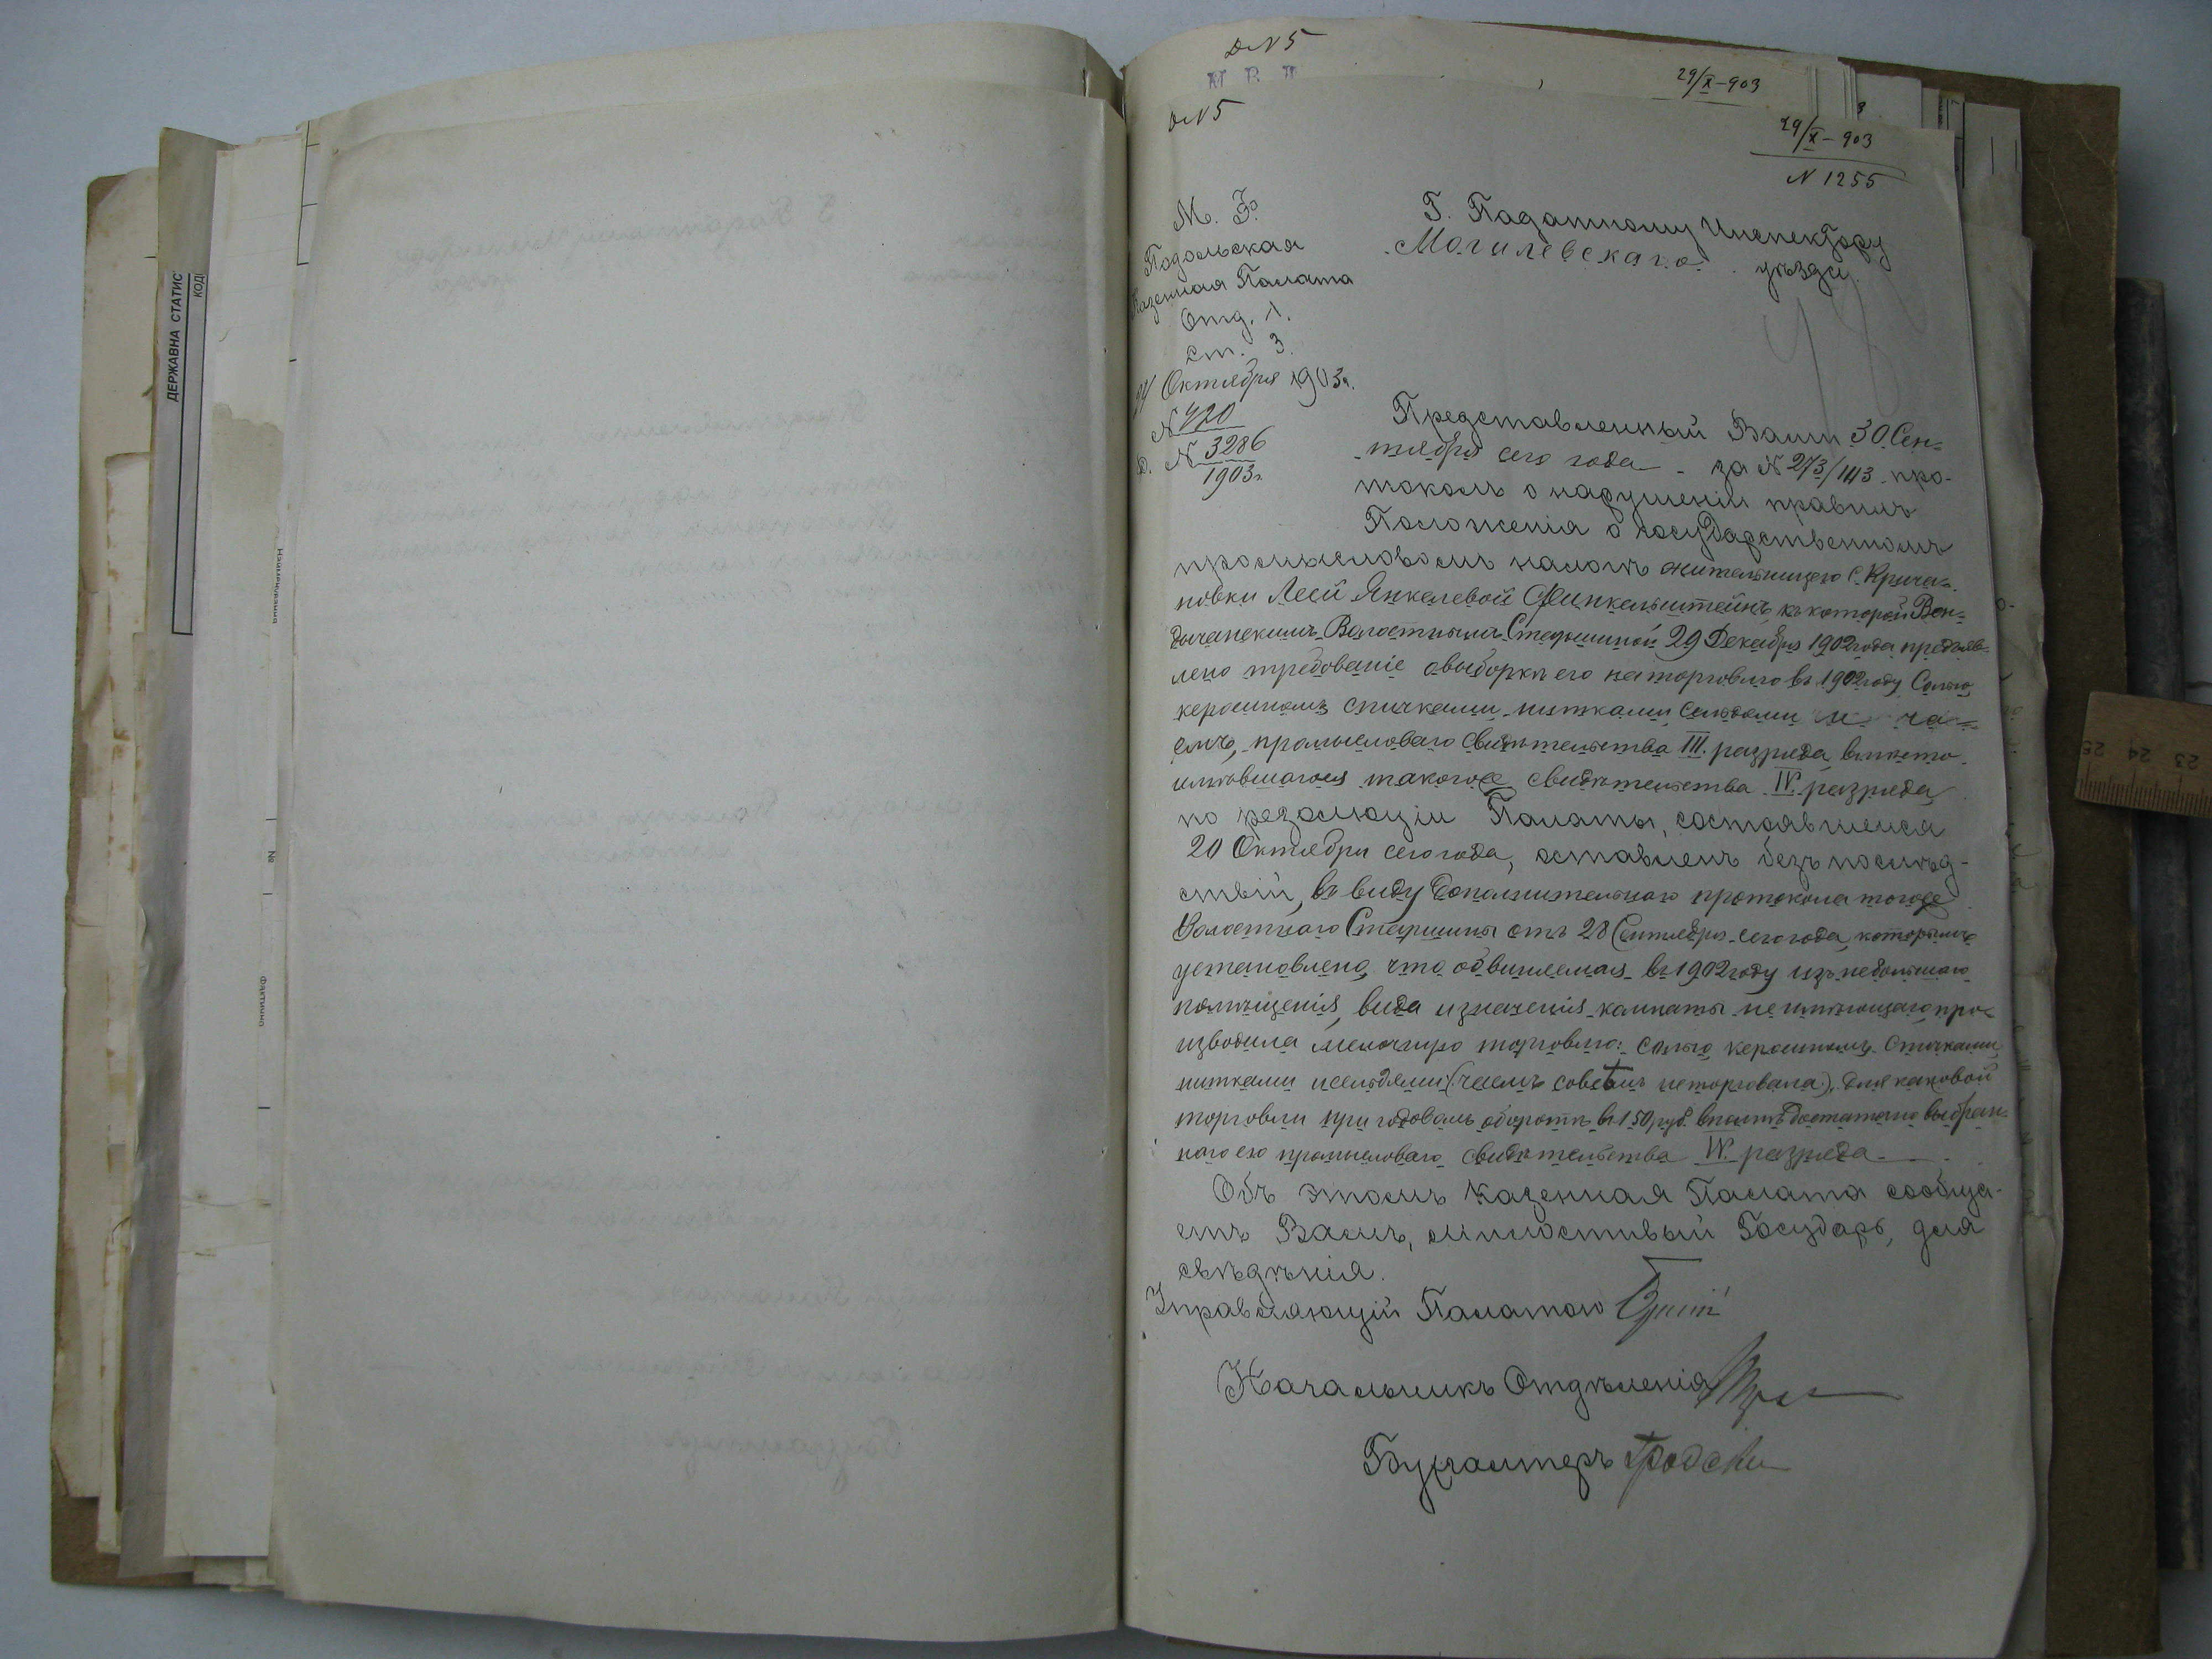 ДЕРЖАВНА СТАТИС
КОД
№
D.N 5
29/X-903
D.N 5
29/X-903
N 1255
М. Ф.
Подольская
Казенная Палата
Отд. 1.
ст. 3.
Октября 1903 г.
N 420
N 3286
1903 г.
Г. Податному Инспектору
Могилевскаго уѣзда.
Представленный Вами 30 Сен-
тября сего года за N 273/1113 про-
токолъ о нарушеніи правилъ
Положенія о государственномъ
промысловомъ налогѣ жительницею с. Крича-
новки Леей Янкелевой Финкельштейнъ, къ которой Вен-
дычанскимъ Волостнымъ Старшиной 29 Декабря 1902 года предъяв-
лено требованіе о выборкѣ его на торговлю въ 1902 году Солью,
керосиномъ спичками, нитками сельдями и ча-
емъ, промысловаго свидѣтельства III. разряда, вмѣсто
имѣвшагося такогоже свидѣтельства IV. разряда
по резолюціи Палаты, состоявшейся
20 Октября сего года, оставленъ безъ послѣд-
ствій, въ виду дополнительнаго протокола тогоже
Волостнаго Старшины отъ 28 Сентября сего года, которымъ
установлено, что обвиняемая въ 1902 году изъ небольшаго
помѣщенія, вида и значенія комнаты не имѣющаго, про-
изводила мелочную торговлю: солью, керосиномъ, спичками,
нитками и сельдями (чаемъ совсѣмъ не торговала), для каковой
торговли при годовомъ оборотѣ въ 150 руб. вполнѣ достаточно выбран-
наго ею промысловаго свидѣтельства IV. разряда.
Объ этомъ Казенная Палата сообща-
етъ Вамъ, Милостивый Государь, для
свѣдѣнія.
Управляющій Палатою
Начальникъ Отдѣленія
Бухгалтеръ
25 24 23